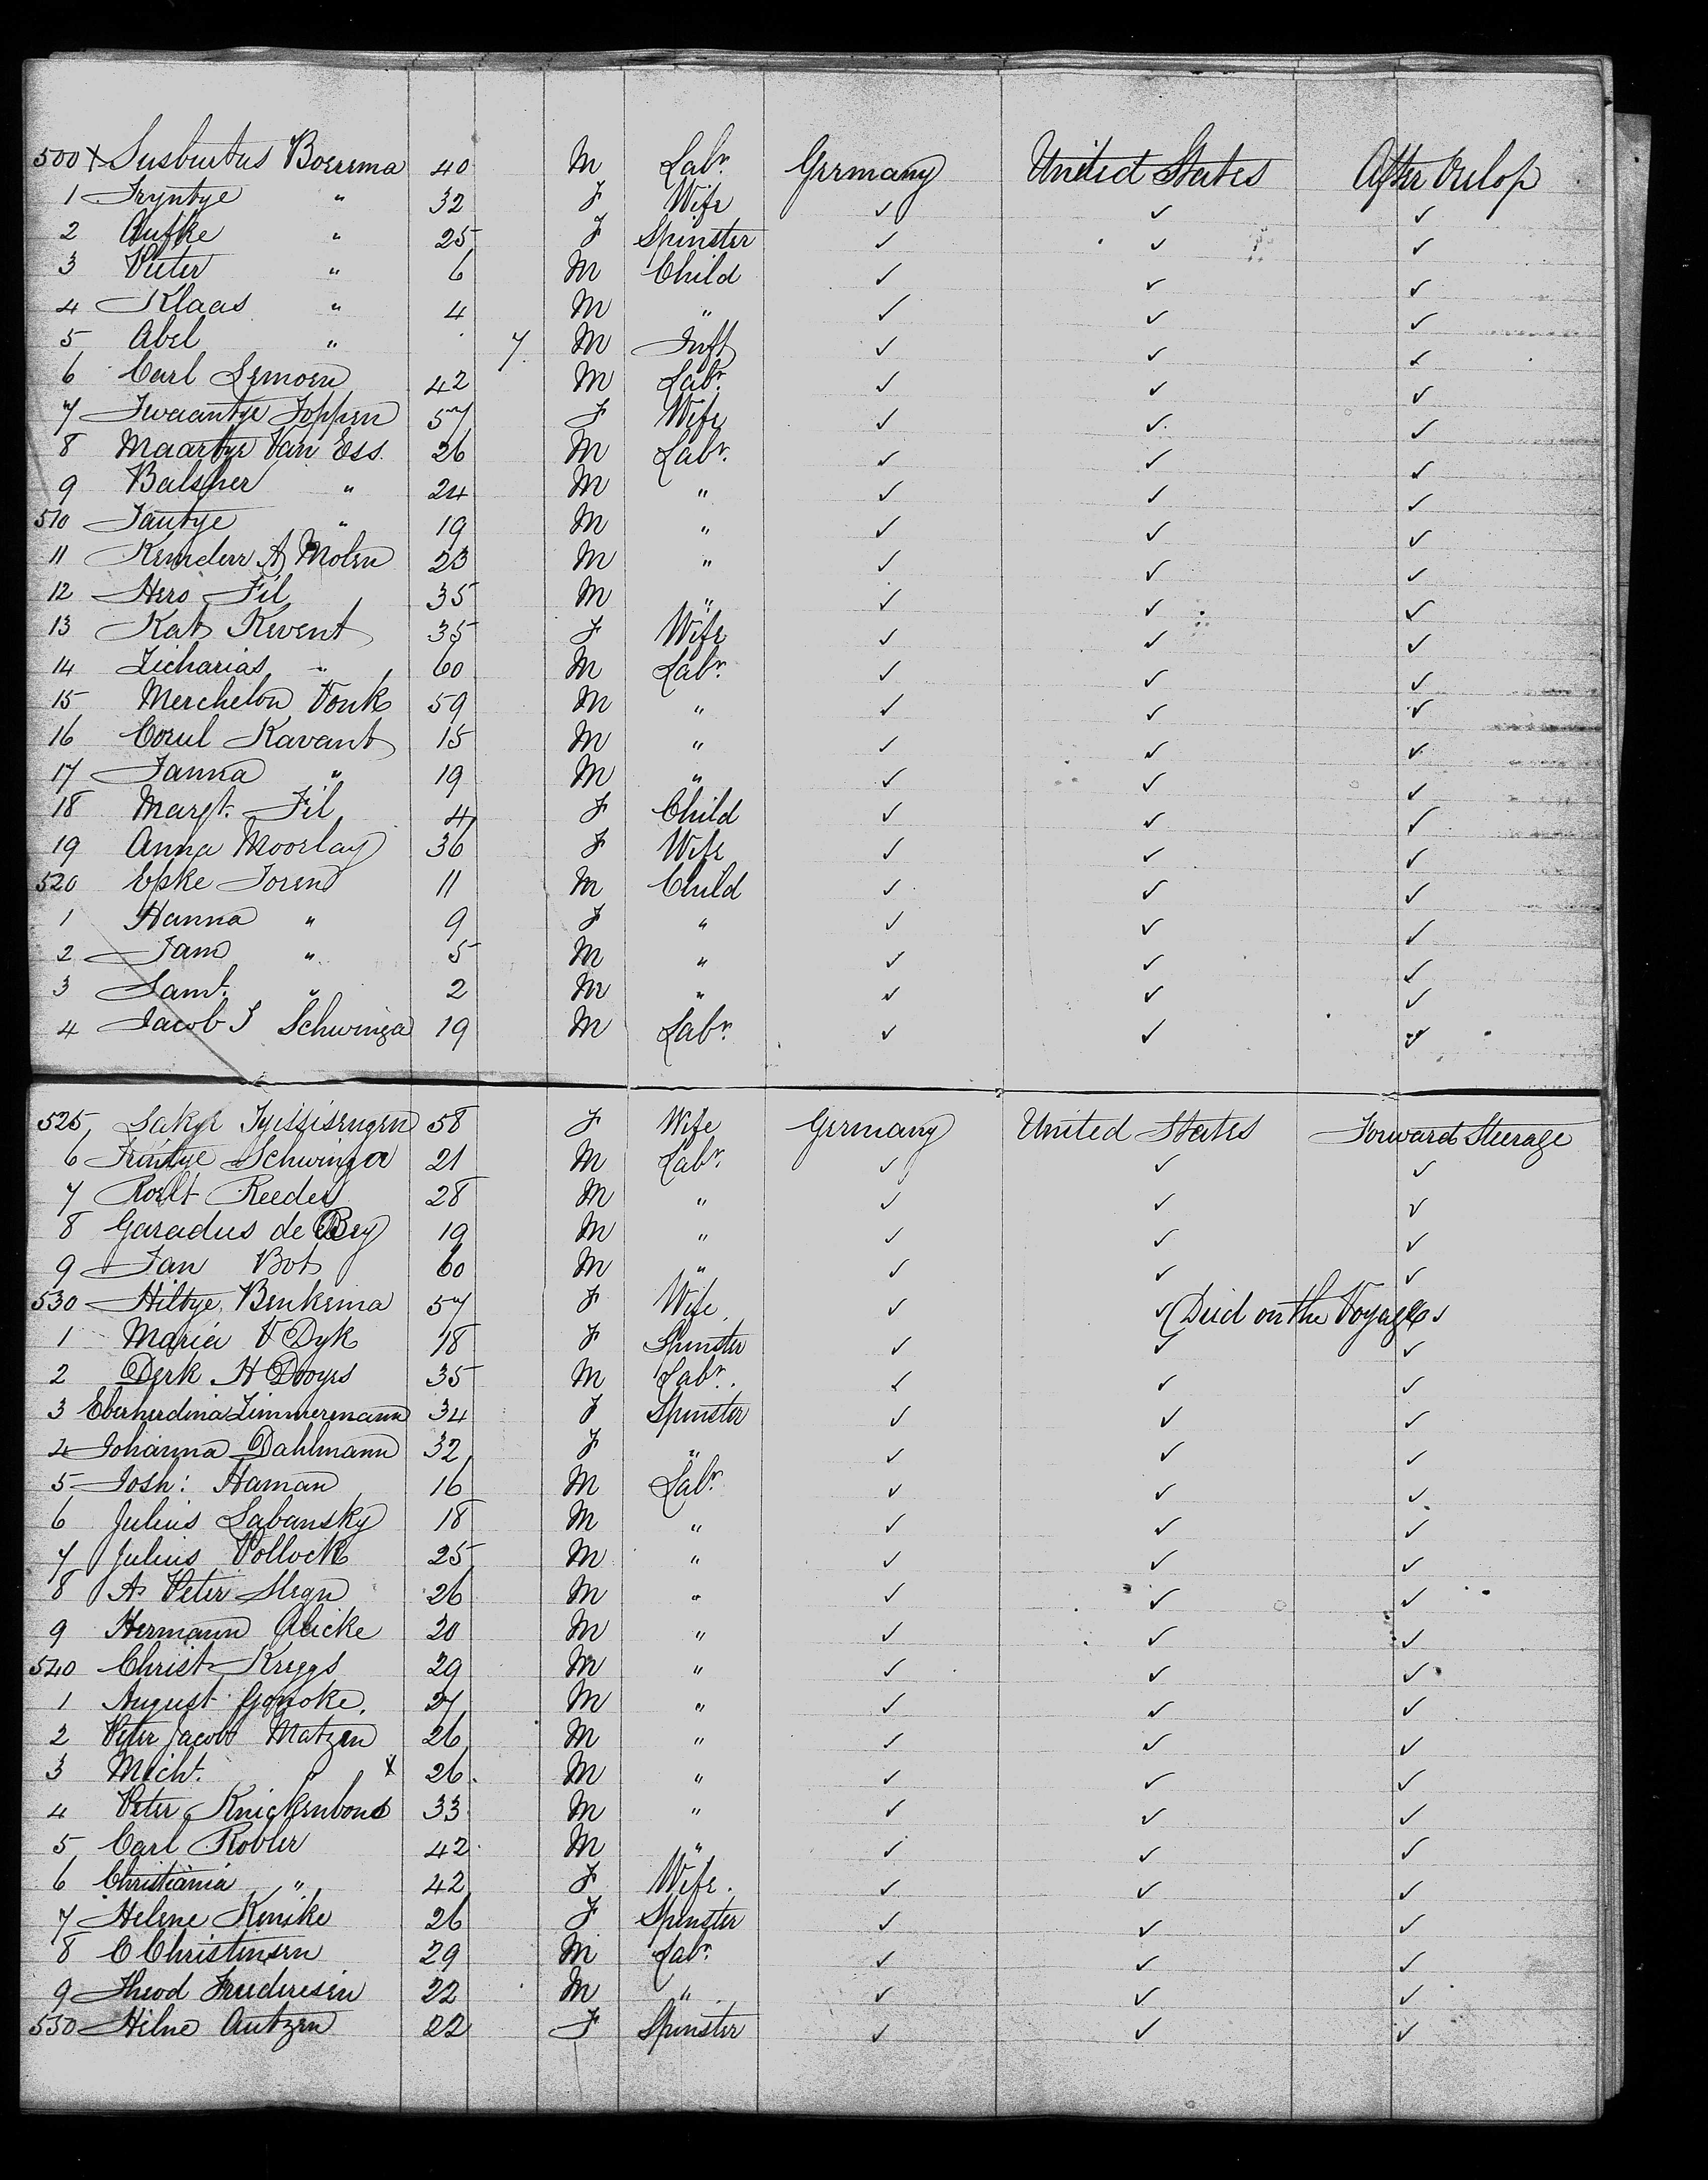 500 X Susbertus Boerema 40 M Labr. Germany United States After Orlop
1 Tryntye " 32 F Wife ✓ ✓ ✓
2 Aufke " 25 F Spinster ✓ ✓ ✓
3 Pieter " 6 M Child ✓ ✓ ✓
4 Klaas " 4 M " ✓ ✓ ✓
5 Abel " 7 M Inft ✓ ✓ ✓
6 Carl Lemoen 42 M Labr. ✓ ✓ ✓
7 Iwaantye Toppen 57 F Wife ✓ ✓ ✓
8 Maartye Van Ess. 26 M Labr. ✓ ✓ ✓
9 Balsher " 24 M " ✓ ✓ ✓
510 Jantye " 19 M " ✓ ✓ ✓
11 A Molen 23 M " ✓ ✓ ✓
12 Hero Fil 35 M " ✓ ✓ ✓
13 Kat Kevent 35 F Wife ✓ ✓ ✓
14 Zicharias " 60 M Labr. ✓ ✓ ✓
15 Merchelon Vonk 59 M " ✓ ✓ ✓
16 Corul Kavant 15 M " ✓ ✓ ✓
17 Janna " 19 M " ✓ ✓ ✓
18 Margt. Fil 4 F Child ✓ ✓ ✓
19 Anna Moorlay 36 F Wife ✓ ✓ ✓
520 Epke Toren 11 M Child ✓ ✓ ✓
1 Hanna " 9 F " ✓ ✓ ✓
2 Jam " 5 M " ✓ ✓ ✓
3 Saml. " 2 M " ✓ ✓ ✓
4 Jacob J Schwinga 19 M Labr. ✓ ✓ ✓
525 Sakye 58 F Wife Germany United States Forward Steerage
6 Trintye Schwinga 21 M Labr. ✓ ✓ ✓
7 Roelt Reeders 28 M " ✓ ✓ ✓
8 Garadus de Bey 19 M " ✓ ✓ ✓
9 Jan Bot 60 M " ✓ ✓ ✓
530 Hiltye Benkema 57 F Wife ✓ ✓ (Died on the Voyage) ✓
1 Maria V Dyk 18 F Spinster ✓ ✓ ✓
2 Derk H Dooyes 35 M Labr. ✓ ✓ ✓
3 Eberherdina Zimmermann 34 F Spinster ✓ ✓ ✓
4 Johanna Dahlmann 32 F " ✓ ✓ ✓
5 Josh: Haman 16 M Labr. ✓ ✓ ✓
6 Julius Labansky 18 M " ✓ ✓ ✓
7 Julius Pollock 25 M " ✓ ✓ ✓
8 A Peter Stegn 26 M " ✓ ✓ ✓
9 Hermann Alicke 20 M " ✓ ✓ ✓
540 Christ Kreggs 29 M " ✓ ✓ ✓
1 August Gonoke 27 M " ✓ ✓ ✓
2 Peter Jacob Matzen 26 M " ✓ ✓ ✓
3 Michl. " X 26 M " ✓ ✓ ✓
4 Peter Knickenbond 33 M " ✓ ✓ ✓
5 Carl Robler 42 M " ✓ ✓ ✓
6 Christiania " 42 F Wife. ✓ ✓ ✓
7 Helene Kinske 26 F Spinster ✓ ✓ ✓
8 C Christinsen 29 M Labr. ✓ ✓ ✓
9 Theod Fruderesen 22 M " ✓ ✓ ✓
550 Hilne Autzen 22 F Spinster ✓ ✓ ✓